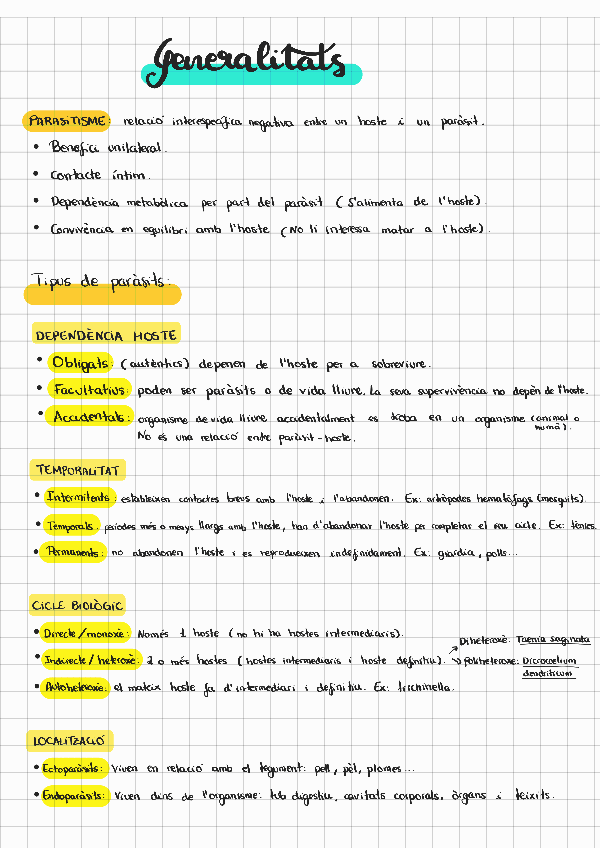 Generalitats
PARASITISME: relació interespecífica negativa entre un hoste i un paràsit.
• Benefici unilateral.
• Contacte íntim.
• Dependència metabòlica per part del paràsit (S'alimenta de l'hoste).
• Convivència en equilibri amb l'hoste (No li interessa matar a l'hoste).
Tipus de paràsits:
DEPENDÈNCIA HOSTE
• Obligats: (autèntics) depenen de l'hoste per a sobreviure.
• Facultatius: poden ser paràsits o de vida lliure. La seva supervivència no depèn de l'hoste.
• Accidentals: organisme de vida lliure accidentalment es troba en un organisme (animal o humà).
No és una relació entre paràsit-hoste.
TEMPORALITAT
• Intermitents: estableixen contactes breus amb l'hoste i l'abandonen. Ex: artròpodes hematòfags (mosquits)
• Temporals: períodes més o menys llargs amb l'hoste, han d'abandonar l'hoste per completar el seu cicle. Ex: tènies.
• Permanents: no abandonen l'hoste i es reprodueixen indefinidament. Ex: giardia, polls...
CICLE BIOLÒGIC
• Directe/monoxè: Només 1 hoste (no hi ha hostes intermediaris).
• Indirecte/heteroxè: 2 o més hostes (hostes intermediaris i hoste definitiu).
Diheteroxè: Taenia saginata
Poliheteroxè: Dicrocoelium
dendriticum
• Autoheteroxè: el mateix hoste fa d'intermediari i definitiu. Ex: trichinella.
LOCALITZACIÓ
• Ectoparàsits: Viven en relació amb el tegument: pell, pèl, plomes...
• Endoparàsits: Viven dins de l'organisme: tub digestiu, cavitats corporals, òrgans i teixits.